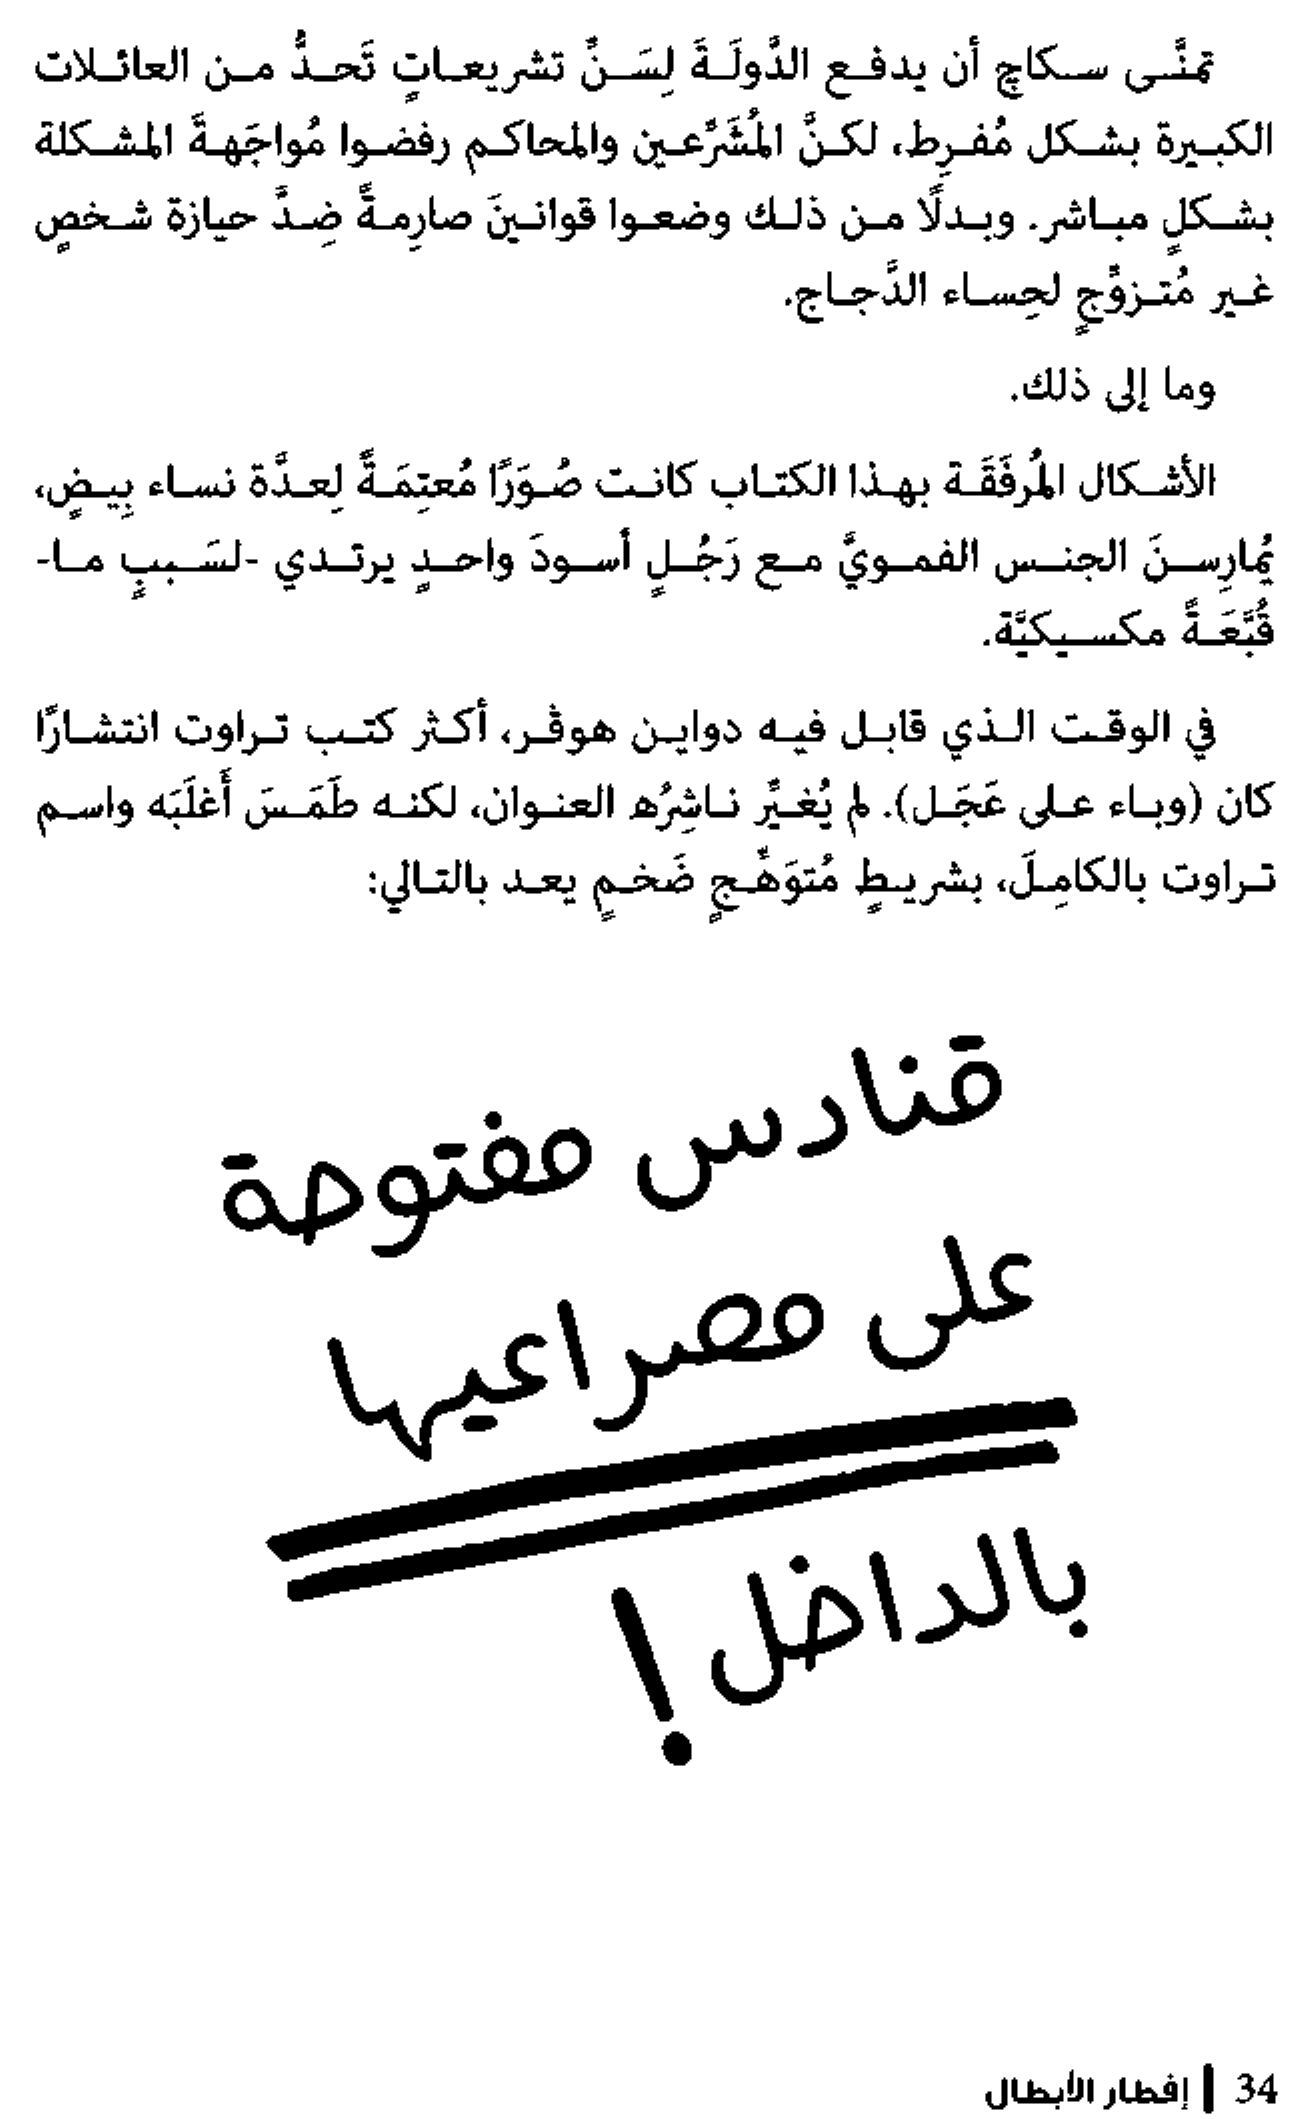 تمنَّى سكاچ أن يدفع الدَّولَةَ لِسَنِّ تشريعاتٍ تَحدُّ من العائلات
الكبيرة بشكل مُفرِط، لكنَّ المُشَرِّعين والمحاكم رفضوا مُواجَهةَ المشكلة
بشكلٍ مباشر. وبدلًا من ذلك وضعوا قوانينَ صارِمةً ضِدَّ حيازة شخصٍ
غير مُتزوِّجٍ لحِساء الدَّجاج.
وما إلى ذلك.
الأشكال المُرفَقَة بهذا الكتاب كانت صُوَرًا مُعتِمَةً لِعدَّة نساء بِيضٍ،
يُمارِسنَ الجنس الفمويَّ مع رَجُلٍ أسودَ واحدٍ يرتدي -لسَببٍ ما-
قُبَّعَةً مكسيكيَّة.
في الوقت الذي قابل فيه دواين هوڤر، أكثر كتب تراوت انتشارًا
كان (وباء على عَجَل). لم يُغيِّر ناشِرُه العنوان، لكنه طَمَسَ أَغلَبَه واسم
تراوت بالكامِلَ، بشريطٍ مُتوَهِّجٍ ضَخمٍ يعد بالتالي:
قنادس مفتوحة
على مصراعيها
بالداخل!
34 | إفطار الأبطال